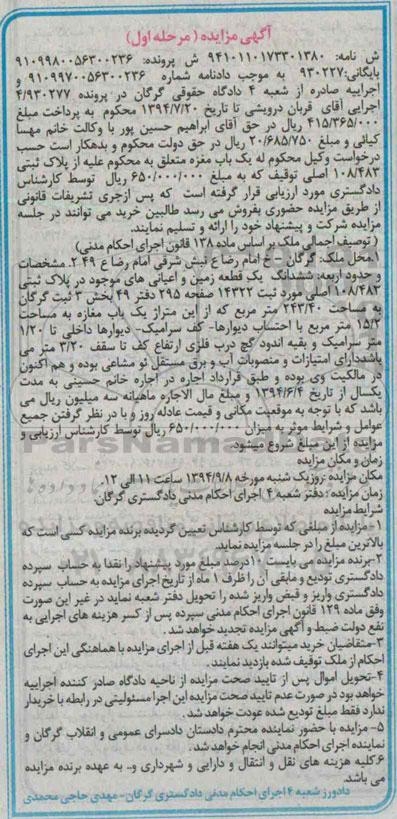 آگهی مزایده ( مرحله اول)
ش نامه: ۹۴۱۰۱۱۰۱۷۳۳۰۱۳۸۰ ش پرونده: ۹۱۰۹۹۸۰۰۵۶۳۰۰۲۳۶
بایگانی:۹۳۰۲۲۷ به موجب دادنامه شماره ۹۱۰۹۹۷۰۰۵۶۳۰۰۲۳۶ و
اجراییه صادره از شعبه ۴ دادگاه حقوقی گرگان در پرونده ۴/۹۳۰۲۷۷
اجرایی آقای قربان درویشی تا تاریخ ۱۳۹۴/۷/۲۰ محکوم به پرداخت مبلغ
۴۱۵/۳۶۵/۰۰۰ ریال در حق آقای ابراهیم حسین پور با وکالت خانم مهسا
کیائی و مبلغ ۲۰/۶۸۵/۷۵۰ ریال در حق دولت محکوم و بدهکار است حسب
درخواست وکیل محکوم له یک باب مغزه متعلق به محکوم علیه از پلاک ثبتی
۱۰۸/۴۸۳ اصلی توقیف که به مبلغ ۶۵۰/۰۰۰/۰۰۰ ریال توسط کارشناس
دادگستری مورد ارزیابی قرار گرفته است که پس ازجری تشریفات قانونی
از طریق مزایده حضوری بفروش می رسد طالبین خرید می توانند در جلسه
مزایده شرکت و پیشنهاد خود را ارائه و تسلیم نمایند.
( توصیف اجمالی ملک بر اساس ماده ۱۳۸ قانون اجرای احکام مدنی)
۱.محل ملک: گرگان خ امام رضا ع نبش شرقی امام رضا ع ۴۹ ۲.مشخصات
و حدود اربعه: ششدانگ یک قطعه زمین و اعیانی های موجود در پلاک ثبتی
۱۰۸/۴۸۳ اصلی مورد ثبت ۱۴۳۲۲ صفحه ۲۹۵ دفتر ۴۹ بخش ۳ ثبت گرگان
به مساحت ۲۴۳/۴۰ متر مربع که از این متراژ یک باب مغازه به مساحت
۱۵/۲ متر مربع با احتساب دیوارها- کف سرامیک- دیوارها داخلی تا ۱/۲۰
متر سرامیک و بقیه اندود گچ درب فلزی ارتفاع کف تا سقف ۳/۲۰ متر می
باشددارای امتیازات و منصوبات آب و برق مستقل تو مشاعی بوده و هم اکنون
در مالکیت وی بوده و طبق قرارداد اجاره در اجاره خانم حسینی به مدت
یکسال از تاریخ ۱۳۹۴/۶/۴ و مبلغ مال الاجاره ماهیانه سه میلیون ریال می
باشد که با توجه به موقعیت مکانی و قیمت عادله روز و با در نظر گرفتن جمیع
عوامل و شرایط موثر به میزان ۶۵۰/۰۰۰/۰۰۰ ریال توسط کارشناس ارزیابی و
مزایده از این مبلغ شروع میشود
زمان و مکان مزایده
مکان مزایده :روزیک شنبه مورخه ۱۳۹۴/۹/۸ ساعت ۱۱ الی ۱۲.
زمان مزایده : دفتر شعبه ۴ اجرای احکام مدنی دادگستری گرگان.
شرایط مزایده
۱-مزایده از مبلغی که توسط کارشناس تعیین گردیده برنده مزایده کسی است که
بالاترین مبلغ را در جلسه مزایده نماید
۲-برنده مزایده می بایست ۱۰درصد مبلغ مورد پیشنهاد را نقدا به حساب سپرده
دادگستری تودیع و مابقی آن را ظرف ۱ ماه از تاریخ اجرای مزایده به حساب سپرده
دادگستری واریز و قبض واریز شده را تحویل دفتر شعبه نماید در غیر این صورت
وفق ماده ۱۲۹ قانون اجرای احکام مدنی سپرده پس از کسر هزینه های اجرایی به
نفع دولت ضبط و آگهی مزایده تجدید خواهد شد .
۳-متقاضیان خرید میتوانند یک هفته قبل از اجرای مزایده با هماهنگی این اجرای
احکام از ملک توقیف شده بازدید نمایند .
۴-تحویل اموال پس از تایید صحت مزایده از ناحیه دادگاه صادر کننده اجراییه
خواهد بود در صورت عدم تایید صحت مزایده این اجرا مسئولیتی در رابطه با خریدار
ندارد فقط مبلغ تودیع شده عودت خواهد شد .
۵- مزایده با حضور نماینده محترم دادستان دادسرای عمومی و انقلاب گرگان و
نماینده اجرای احکام مدنی انجام خواهد شد.
۶.کلیه هزینه های نقل و انتقال و دارایی و شهرداری و.. به عهده برنده مزایده
می باشد.
دادورز شعبه ۴ اجرای احکام مدنی دادگستری گرگان- مهدی حاجی محمدی